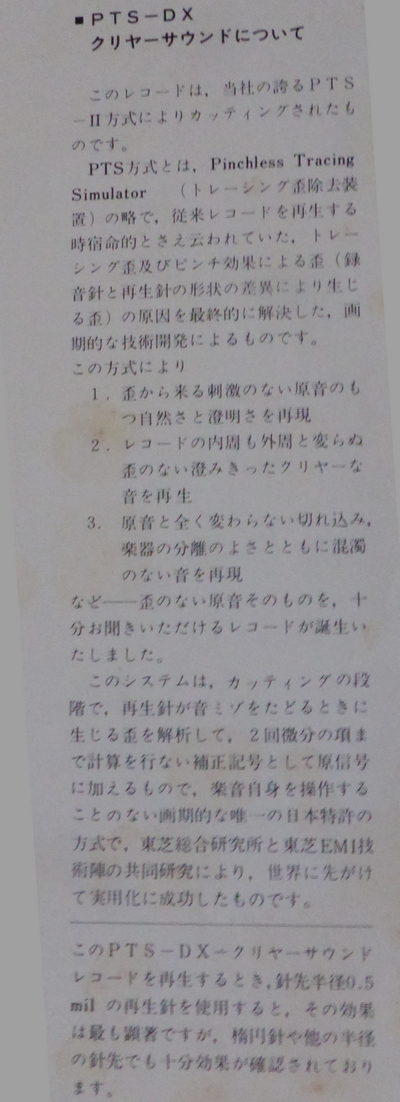 ■PTS−DX
クリヤーサウンドについて
このレコードは，当社の誇るPTS
−II方式によりカッティングされたも
のです。
PTS方式とは，Pinchless Tracing
Simulator （トレーシング歪除去装
置）の略で，従来レコードを再生する
時宿命的とさえ云われていた，トレー
シング歪及びピンチ効果による歪（録
音針と再生針の形状の差異により生じ
る歪）の原因を最終的に解決した，画
期的な技術開発によるものです。
この方式により
1．歪から来る刺激のない原音のも
つ自然さと澄明さを再現
2．レコードの内周も外周と変らぬ
歪のない澄みきったクリヤーな
音を再生
3．原音と全く変わらない切れ込み，
楽器の分離のよさとともに混濁
のない音を再現
など──歪のない原音そのものを，十
分お聞きいただけるレコードが誕生い
たしました。
このシステムは，カッティングの段
階で，再生針が音ミゾをたどるときに
生じる歪を解析して，2回微分の項ま
で計算を行ない補正記号として原信号
に加えるもので，楽音自身を操作する
ことのない画期的な唯一の日本特許の
方式で，東芝総合研究所と東芝EMI技
術陣の共同研究により，世界に先がけ
て実用化に成功したものです。
このPTS−DX−クリヤーサウンド
レコードを再生するとき，針先半径0.5
mil の再生針を使用すると，その効果
は最も顕著ですが，楕円針や他の半径
の針先でも十分効果が確認されており
ます。